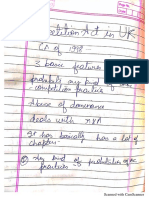 Competition Act in UK
Act of 1998 -
3 basic feature
prohibits any kind of anti
competition practice
Abuse of dominance
deals with M&A
It has basically has a lot of
chapters
Any kind of prohibition of
practices
Scanned with CamScanner